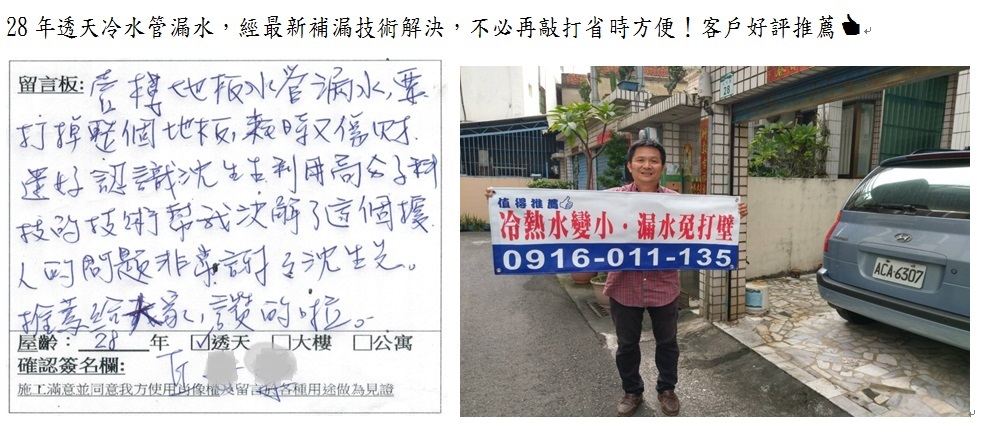 28 年透天冷水管漏水，經最新補漏技術解決，不必再敲打省時方便！客戶好評推薦
留言板: 舊樓地板水管漏水,要
打掉整個地板,耗時又傷財.
還好認識沈生生利用高分子科
技的技術幫我決解了這個擾
人的問題非常謝謝沈生先。
推荐給大家,讚的啦。
屋齡：28 年 ☑透天 □大樓 □公寓
確認簽名欄:
施工滿意並同意我方使用肖像權及留言於各種用途做為見證
值得推薦
冷熱水變小·漏水免打壁
0916-011-135
28
ACA·6307